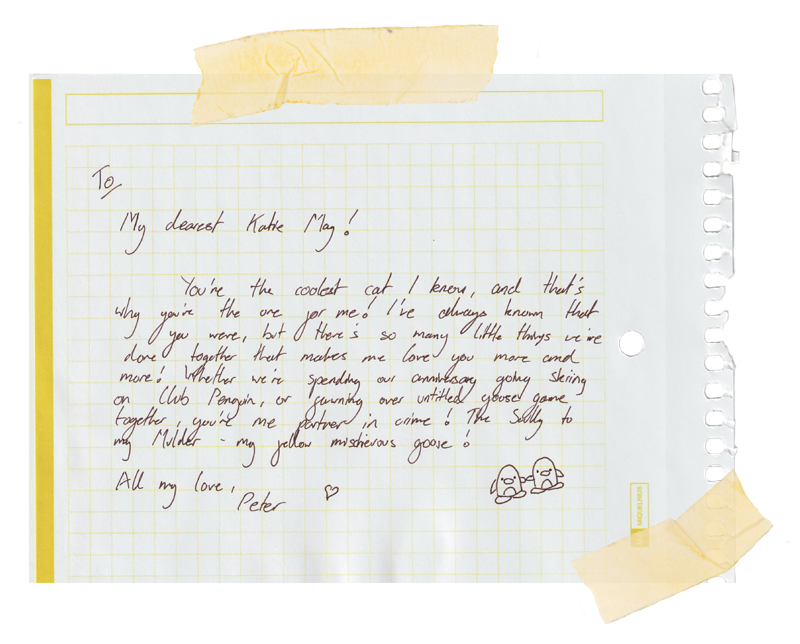 To
My dearest Katie May!
You're the coolest cat I know, and that's
why you're the one for me! I've always known that
you were, but there's so many little things we're
done together that makes me love you more and
more! Whether we're spending our anniversary going skiing
on Club Penguin, or fawning over untitled goose game
together, you're me partner in crime! The Scully to
my Mulder - my fellow mischievous goose!
All my love,
Peter
MIQUELRIUS